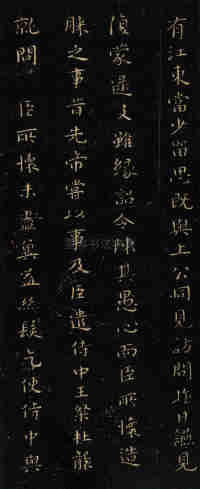 有江東當少留思既與上公同見訪問昨日疏見
復蒙逮及雖緣詔令陳其愚心而臣所懷造
膝之事昔先帝嘗以事及臣遣侍中王粲杜襲
就問臣所懷未盡冀益絲髮乞使侍中與